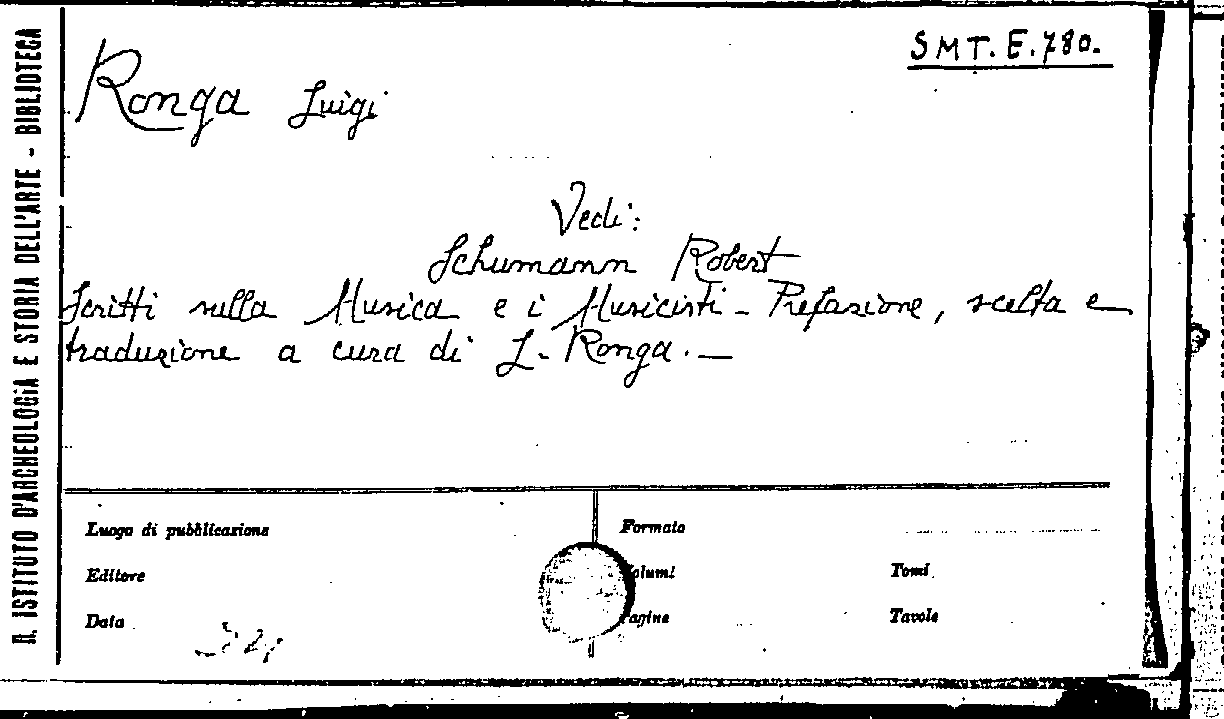 R. ISTITUTO D'ARCHEOLOGIA E STORIA DELL'ARTE - BIBLIOTECA
SMT. E. 780.
Ronga Luigi
Vedi:
Schumann Robert
Scritti sulla Musica e i Musicisti - Prefazione, scelta e
traduzione a cura di L. Ronga. —
Luogo di pubblicazione
Formato
Editore
Volumi
Tomi
Data
Pagine
Tavole